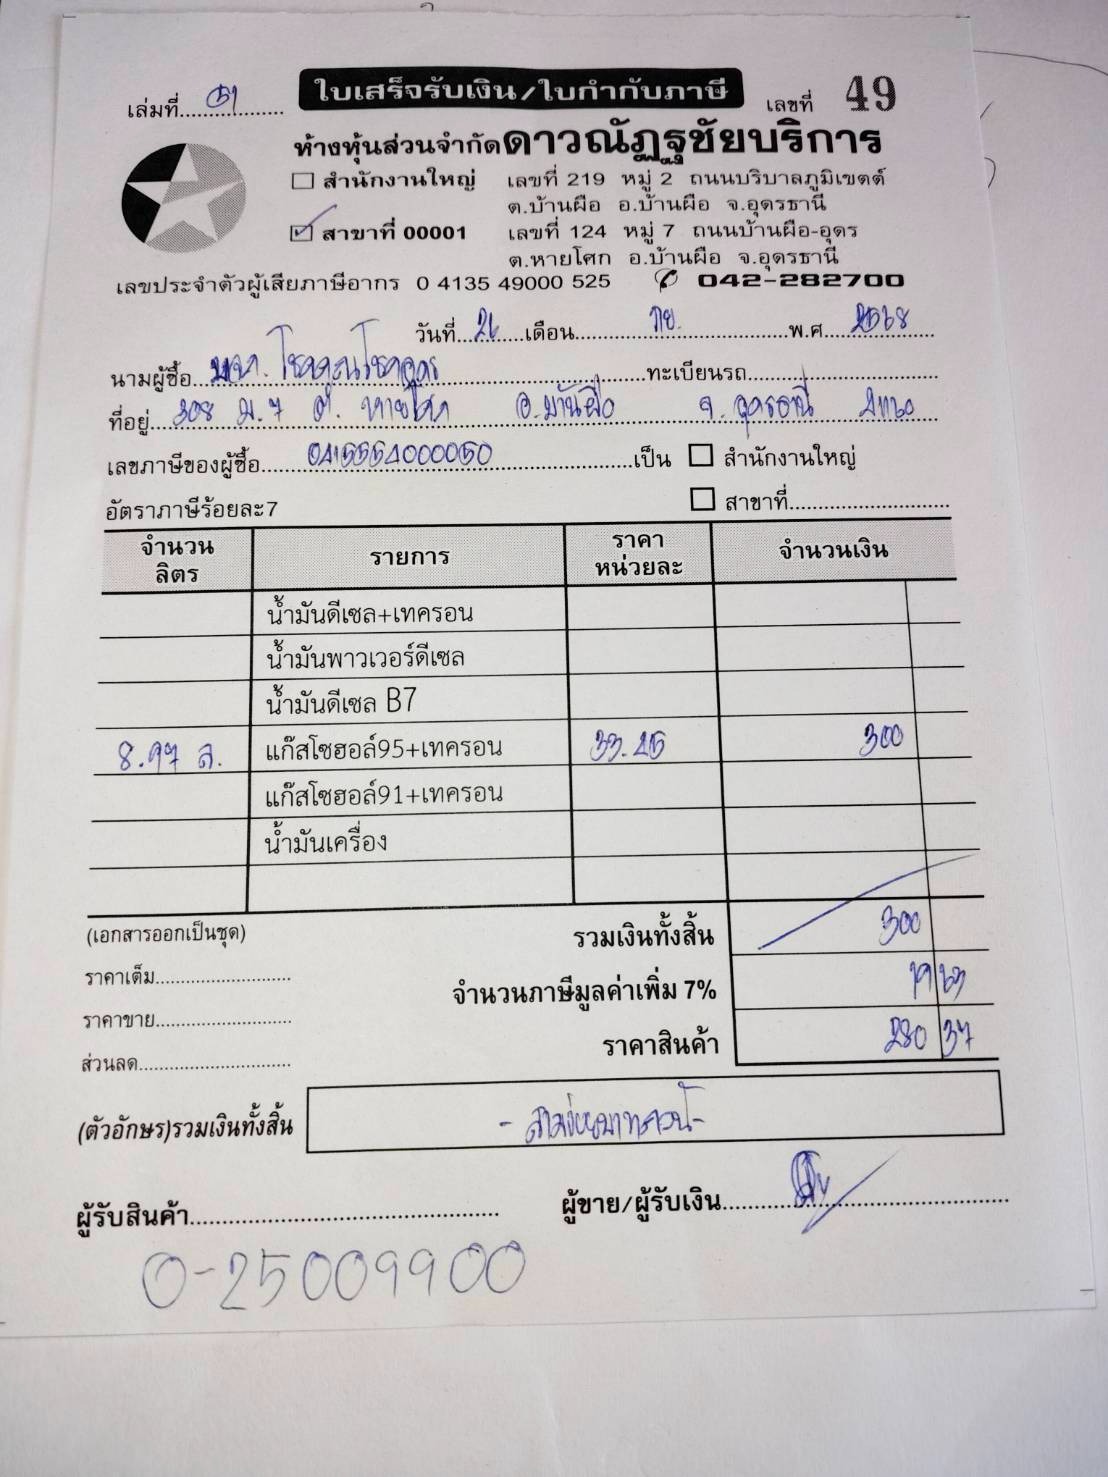 ใบเสร็จรับเงิน/ใบกำกับภาษี
เล่มที่ 51 เลขที่ 49
ห้างหุ้นส่วนจำกัดดาวณัฏฐชัยบริการ
สำนักงานใหญ่ เลขที่ 219 หมู่ 2 ถนนบริบาลภูมิเขตต์
ต.บ้านผือ อ.บ้านผือ จ.อุดรธานี
สาขาที่ 00001 เลขที่ 124 หมู่ 7 ถนนบ้านผือ-อุดร
ต.หายโศก อ.บ้านผือ จ.อุดรธานี
เลขประจำตัวผู้เสียภาษีอากร 0 4135 49000 525 042-282700
วันที่ 26 เดือน กย. พ.ศ 2568
นามผู้ซื้อ หจก. โชคคูณโชคอุดร ทะเบียนรถ
ที่อยู่ 308 ม.7 ต. หายโศก อ.บ้านผือ จ.อุดรธานี
เลขภาษีของผู้ซื้อ 0415554000050 เป็น สำนักงานใหญ่
อัตราภาษีร้อยละ7 สาขาที่
จำนวนลิตร รายการ ราคาหน่วยละ จำนวนเงิน
น้ำมันดีเซล+เทครอน
น้ำมันพาวเวอร์ดีเซล
น้ำมันดีเซล B7
8.97 ล. แก๊สโซฮอล์95+เทครอน 33.45 300
แก๊สโซฮอล์91+เทครอน
น้ำมันเครื่อง
(เอกสารออกเป็นชุด) รวมเงินทั้งสิ้น 300
ราคาเต็ม
จำนวนภาษีมูลค่าเพิ่ม 7% 19 63
ราคาขาย
ราคาสินค้า 280 37
ส่วนลด
(ตัวอักษร)รวมเงินทั้งสิ้น - สามร้อยบาทถ้วน -
ผู้รับสินค้า ผู้ขาย/ผู้รับเงิน
0-25009900